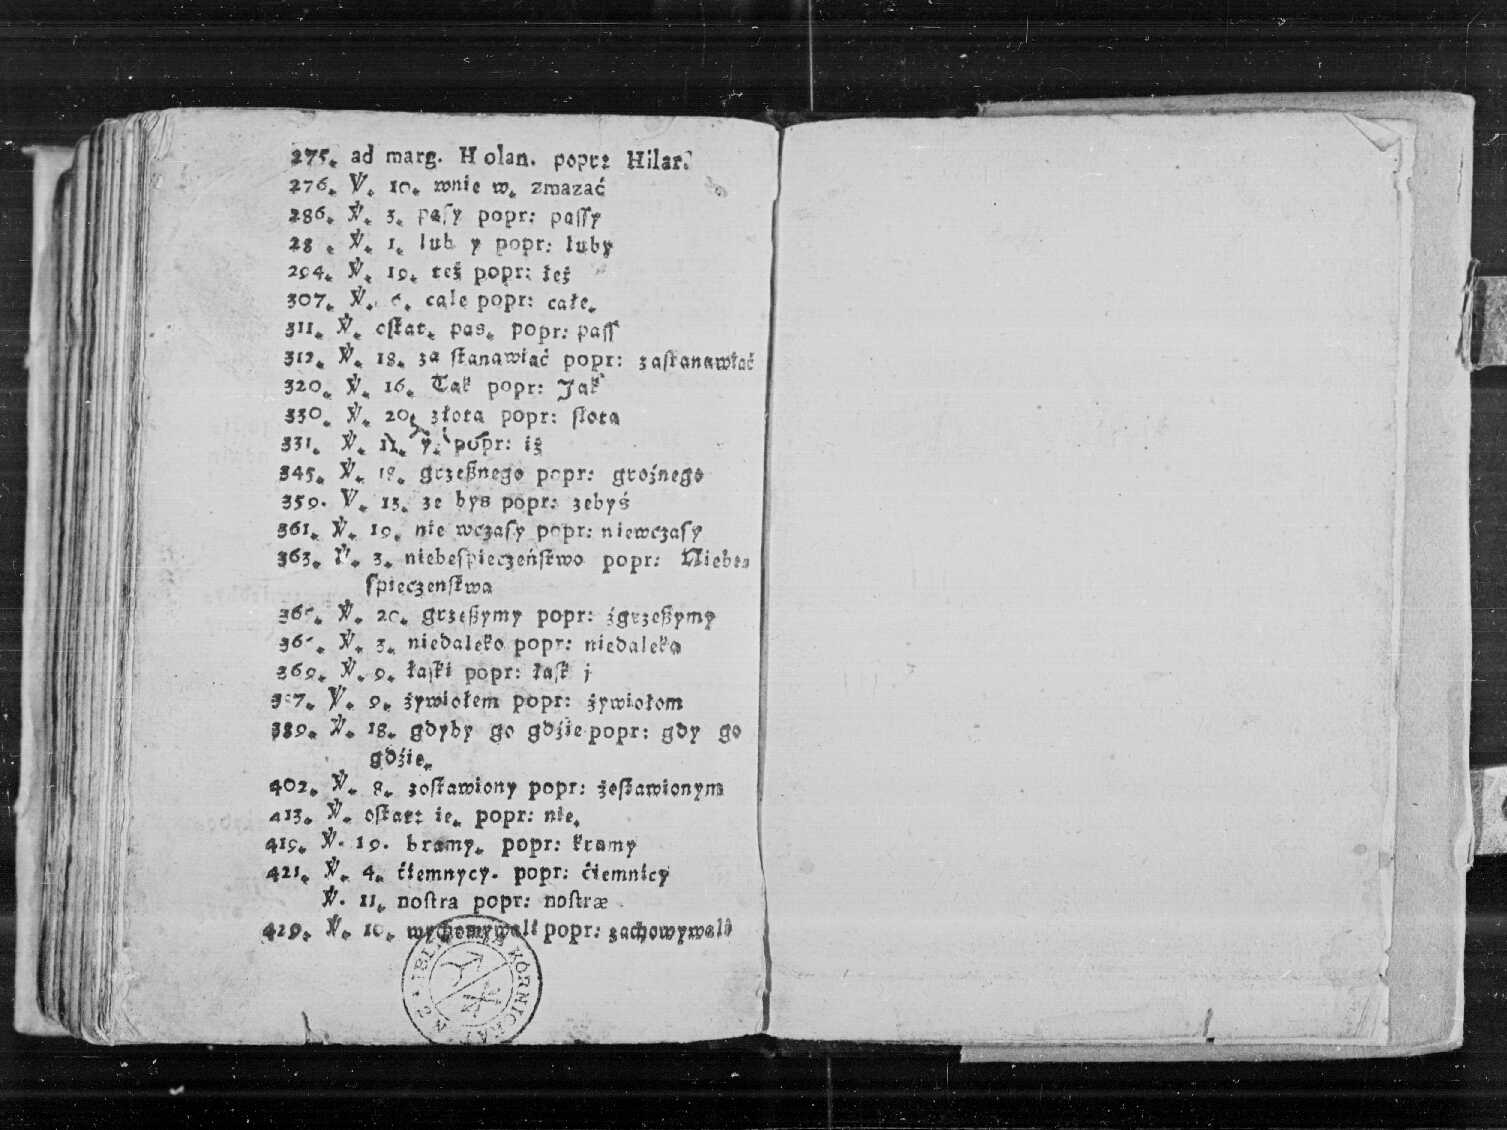 275. ad marg. Holan. popr: Hilar.
276. V. 10. wnie w. zmazać
286. V. 3. paſy popr: paſſy
28 . V. 1. lub y popr: luby
294. V. 19. też popr: łeż
307. V. 6. cale popr: całe.
311. V. oſtat. pas. popr: paſſ
312. V. 18. za ſtanawiać popr: zaſtanawiać
320. V. 16. Tak popr: Jak
330. V. 20. złota popr: ſłota
331. V. y. popr: iż
345. V. 18. grzeßnego popr: groźnego
359. V. 15. ze bys popr: zebyś
361. V. 19. nie wczaſy popr: niewczaſy
363. V. 3. niebeſpieczeńſtwo popr: Niebe-
ſpieczenſtwa
V. 20. grzeßymy popr: zgrzeßymy
V. 3. niedaleko popr: niedaleka
369. V. 9. łaſki popr: łaſk j
V. 9. żywiołem popr: żywiołom
389. V. 18. gdyby go gdźie popr: gdy go
gdźie.
402. V. 8. zoſtawiony popr: zeſtawionym
413. V. oſtat: ie. popr: nie.
419. V. 19. bramy. popr: kramy
421. V. 4. ćiemnycy. popr: ćiemnicy
V. 11. noſtra popr: noſtræ
429. V. 10. wychowywali popr: zachowywali
KÓRNICKA